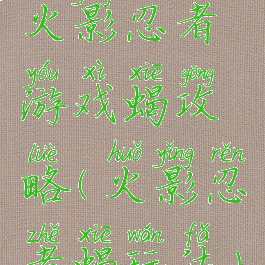 火影忍者
yóu xì xiē gōng
游戏蝎攻
lüè huǒ yǐng rěn
略(火影忍
zhě xiē wán fǎ
者蝎玩法)